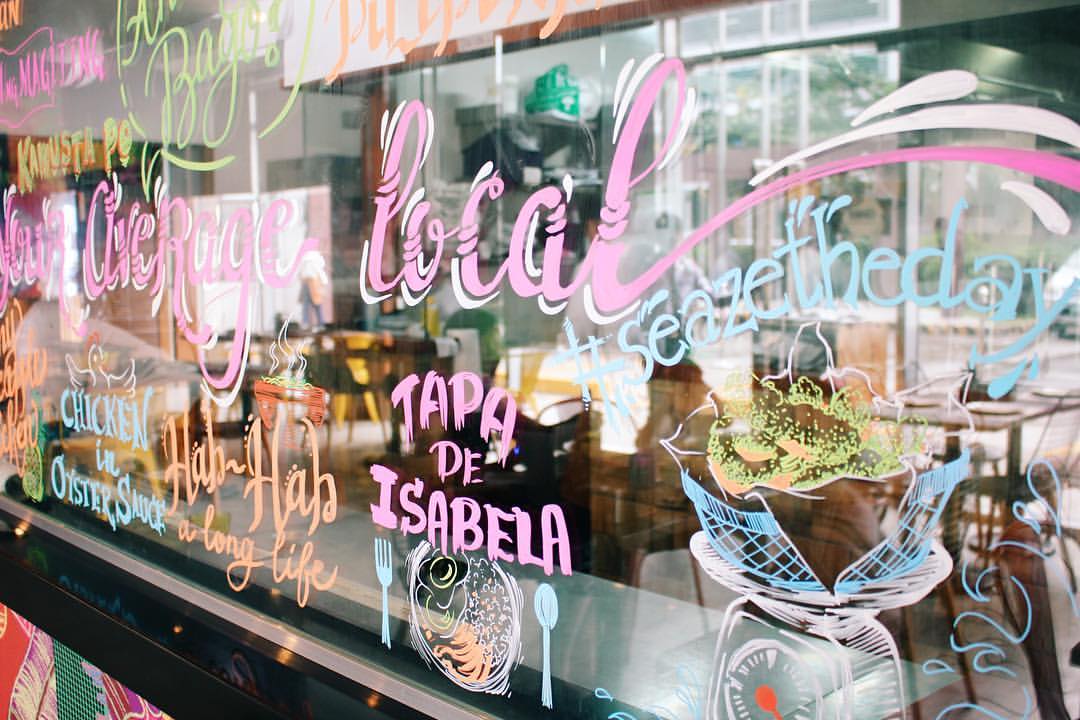 Bago?
ng MAGITING
KAMUSTA PO
your average local
#seazetheday
CHICKEN
in
OYSTER SAUCE
Hab-Hab
a long life
TAPA
DE
ISABELA